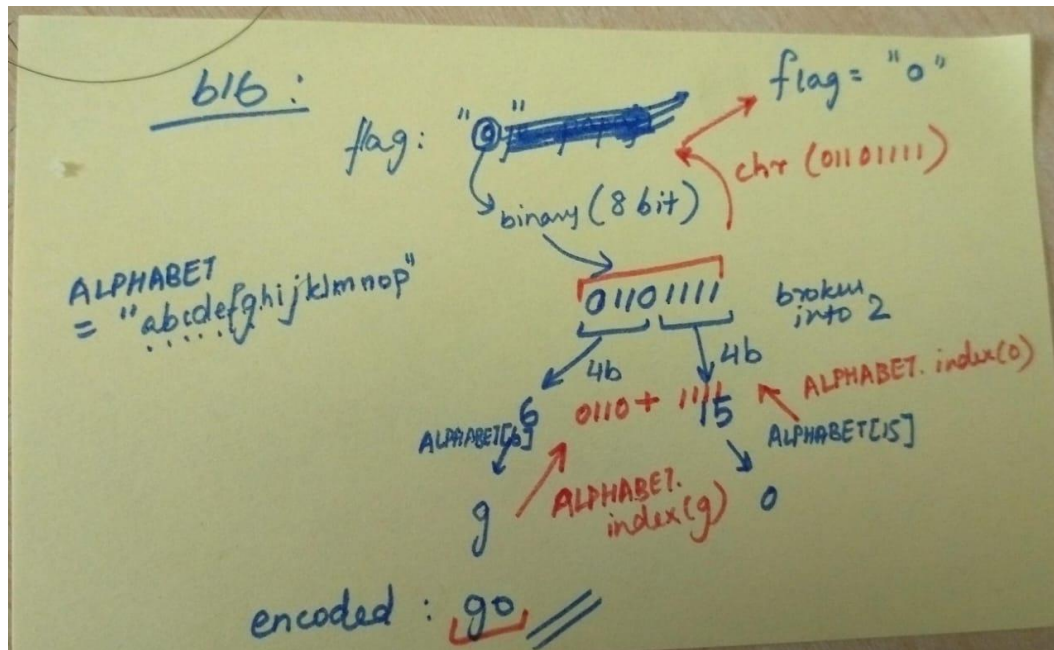 b16 :
flag = "o"
flag: "o
chr (01101111)
binary (8 bit)
ALPHABET
= "abcdefghijklmnop"
01101111
broken
into 2
4b
4b
ALPHABET. index(o)
6
0110 + 1111
15
ALPHABET[6]
ALPHABET[15]
g
ALPHABET.
index(g)
o
encoded : go